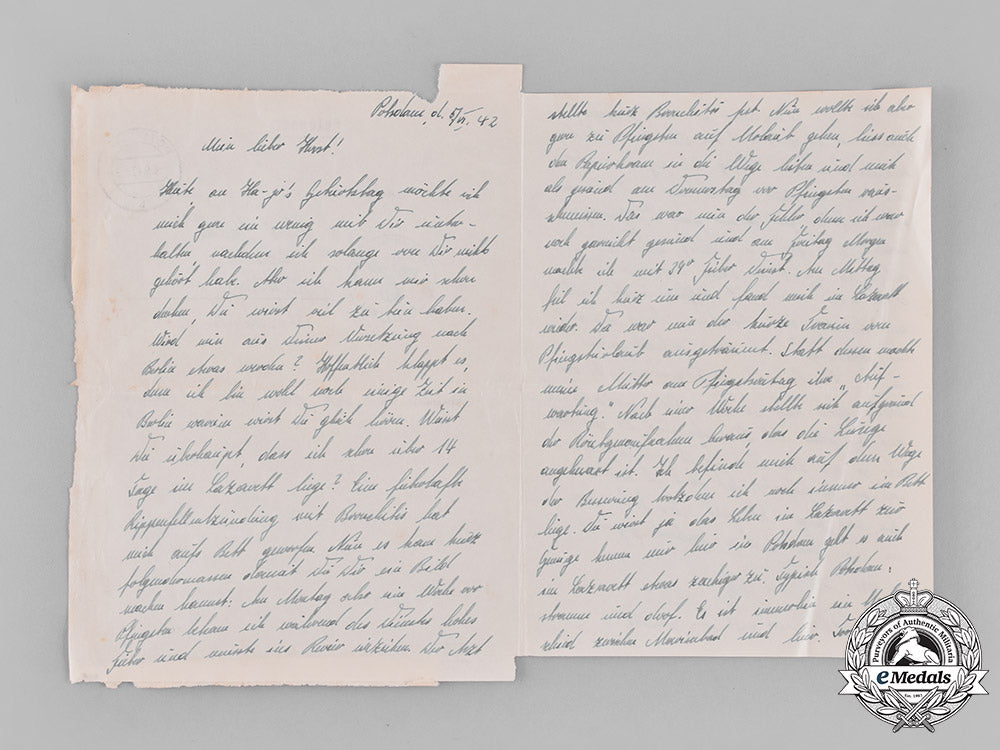 Potsdam, d. 5/VI. 42
Mein lieber Horst!
Heute an Ha-jo's Geburtstag möchte ich
mich gern ein wenig mit Dir unter-
halten, nachdem ich solange von Dir nichts
gehört habe. Aber ich kann mir schon
denken, Du wirst viel zu tun haben.
Wird nun aus Deiner Versetzung nach
Berlin etwas werden? Hoffentlich klappt es,
denn ich bin wohl noch einige Zeit in
Berlin warum wirst Du gleich hören. Weist
Du überhaupt, dass ich schon über 14
Tage im Lazarett liege? Eine fieberhafte
Rippenfellentzündung mit Bronchitis hat
mich aufs Bett geworfen. Nun es kam kurz
folgendermassen damit Du Dir ein Bild
machen kannst: Am Montag oder eine Woche vor
Pfingsten bekam ich während des Dienstes hohes
Fieber und musste ins Revier einziehen. Der Arzt
stellte kurz Bronchitis fest. Nun wollte ich aber
gern zu Pfingsten auf Urlaub gehen, liess auch
den Papierkram in die Wege leiten und mich
als gesund am Donnerstag vor Pfingsten raus-
schmeissen. Das war nun der Fehler denn ich war
noch garnicht gesund und am Freitag Morgen
machte ich mit 39° Fieber Dienst. Am Mittag
fiel ich kurz um und fand mich im Lazarett
wieder. Da war nun der kurze Traum vom
Pfingsturlaub ausgeträumt. Statt dessen machte
meine Mutter am Pfingstsonntag ihre "Auf-
wartung." Nach einer Woche stellte sich aufgrund
der Röntgenaufnahme heraus, das die Lunge
angeknaxt ist. Ich befinde mich auf dem Wege
der Besserung trotzdem ich noch immer im Bett
liege. Du wirst ja das Leben im Lazarett zur
Genüge kennen nur hier in Potsdam geht es auch
im Lazarett etwas zackiger zu. Typisch Potsdam:
stramm und doof. Es ist immerhin ein
schied zwischen Marienbad und hier.
Purveyors of Authentic Militaria
eMedals
Est. 1967